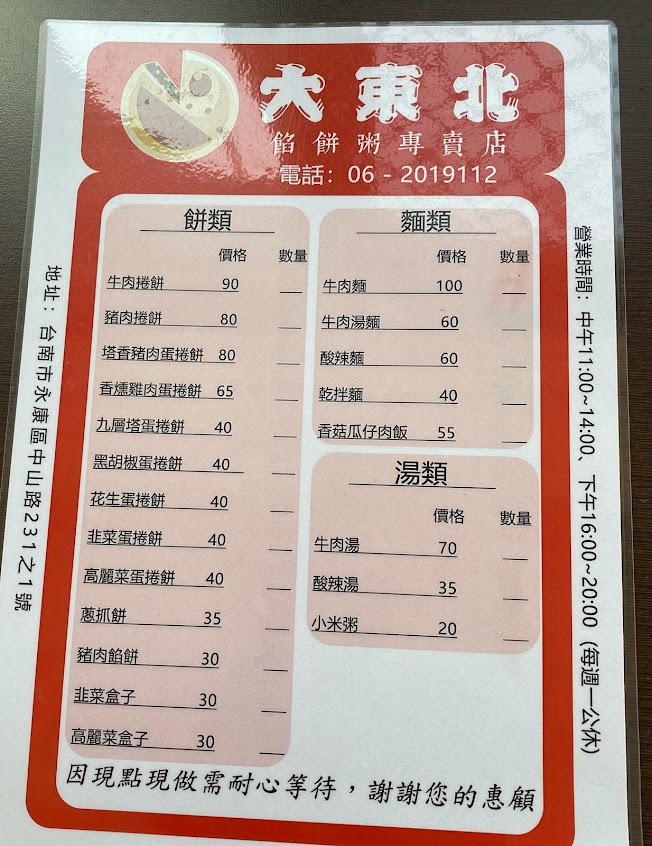 大東北
餡餅粥專賣店
電話：06 - 2019112
餅類
價格 數量
牛肉捲餅 90
豬肉捲餅 80
塔香豬肉蛋捲餅 80
香燻雞肉蛋捲餅 65
九層塔蛋捲餅 40
黑胡椒蛋捲餅 40
花生蛋捲餅 40
韭菜蛋捲餅 40
高麗菜蛋捲餅 40
蔥抓餅 35
豬肉餡餅 30
韭菜盒子 30
高麗菜盒子 30
麵類
價格 數量
牛肉麵 100
牛肉湯麵 60
酸辣麵 60
乾拌麵 40
香菇瓜仔肉飯 55
湯類
價格 數量
牛肉湯 70
酸辣湯 35
小米粥 20
因現點現做需耐心等待，謝謝您的惠顧
地址：台南市永康區中山路231之1號
營業時間：中午11:00~14:00、下午16:00~20:00（每週一公休）